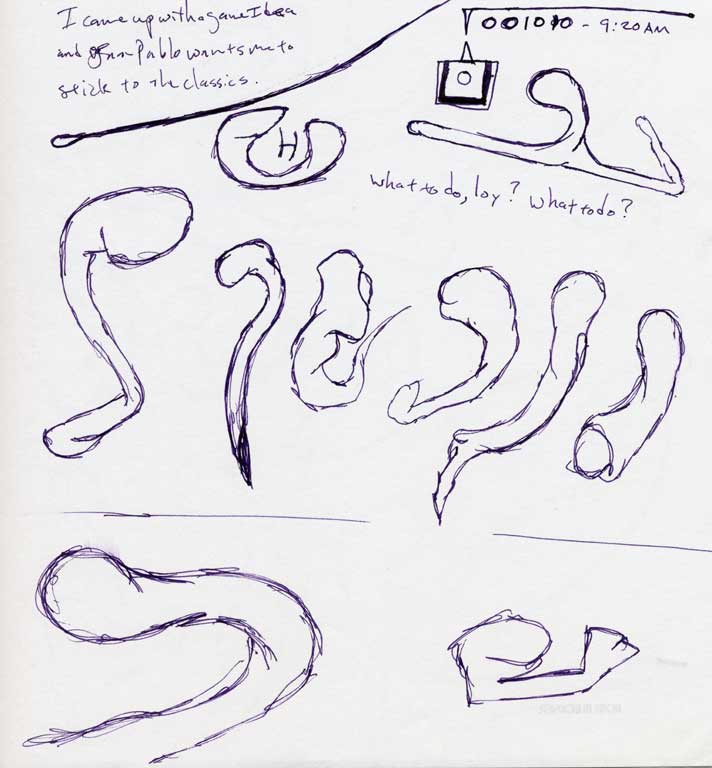 I came up with a game Idea
and Pablo wants me to
stick to the classics.
001010 - 9:20AM
H
what to do, loy? What to do?